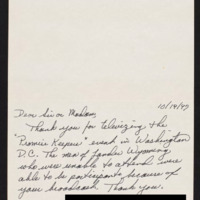 10/14/97
Dear Sir or Madam,
Thank you for televizing the
"Promise Keepers" event in Washington
D.C. The men of Lander Wyoming
who were unable to attend were
able to be participants because of
your broadcast. Thank you.